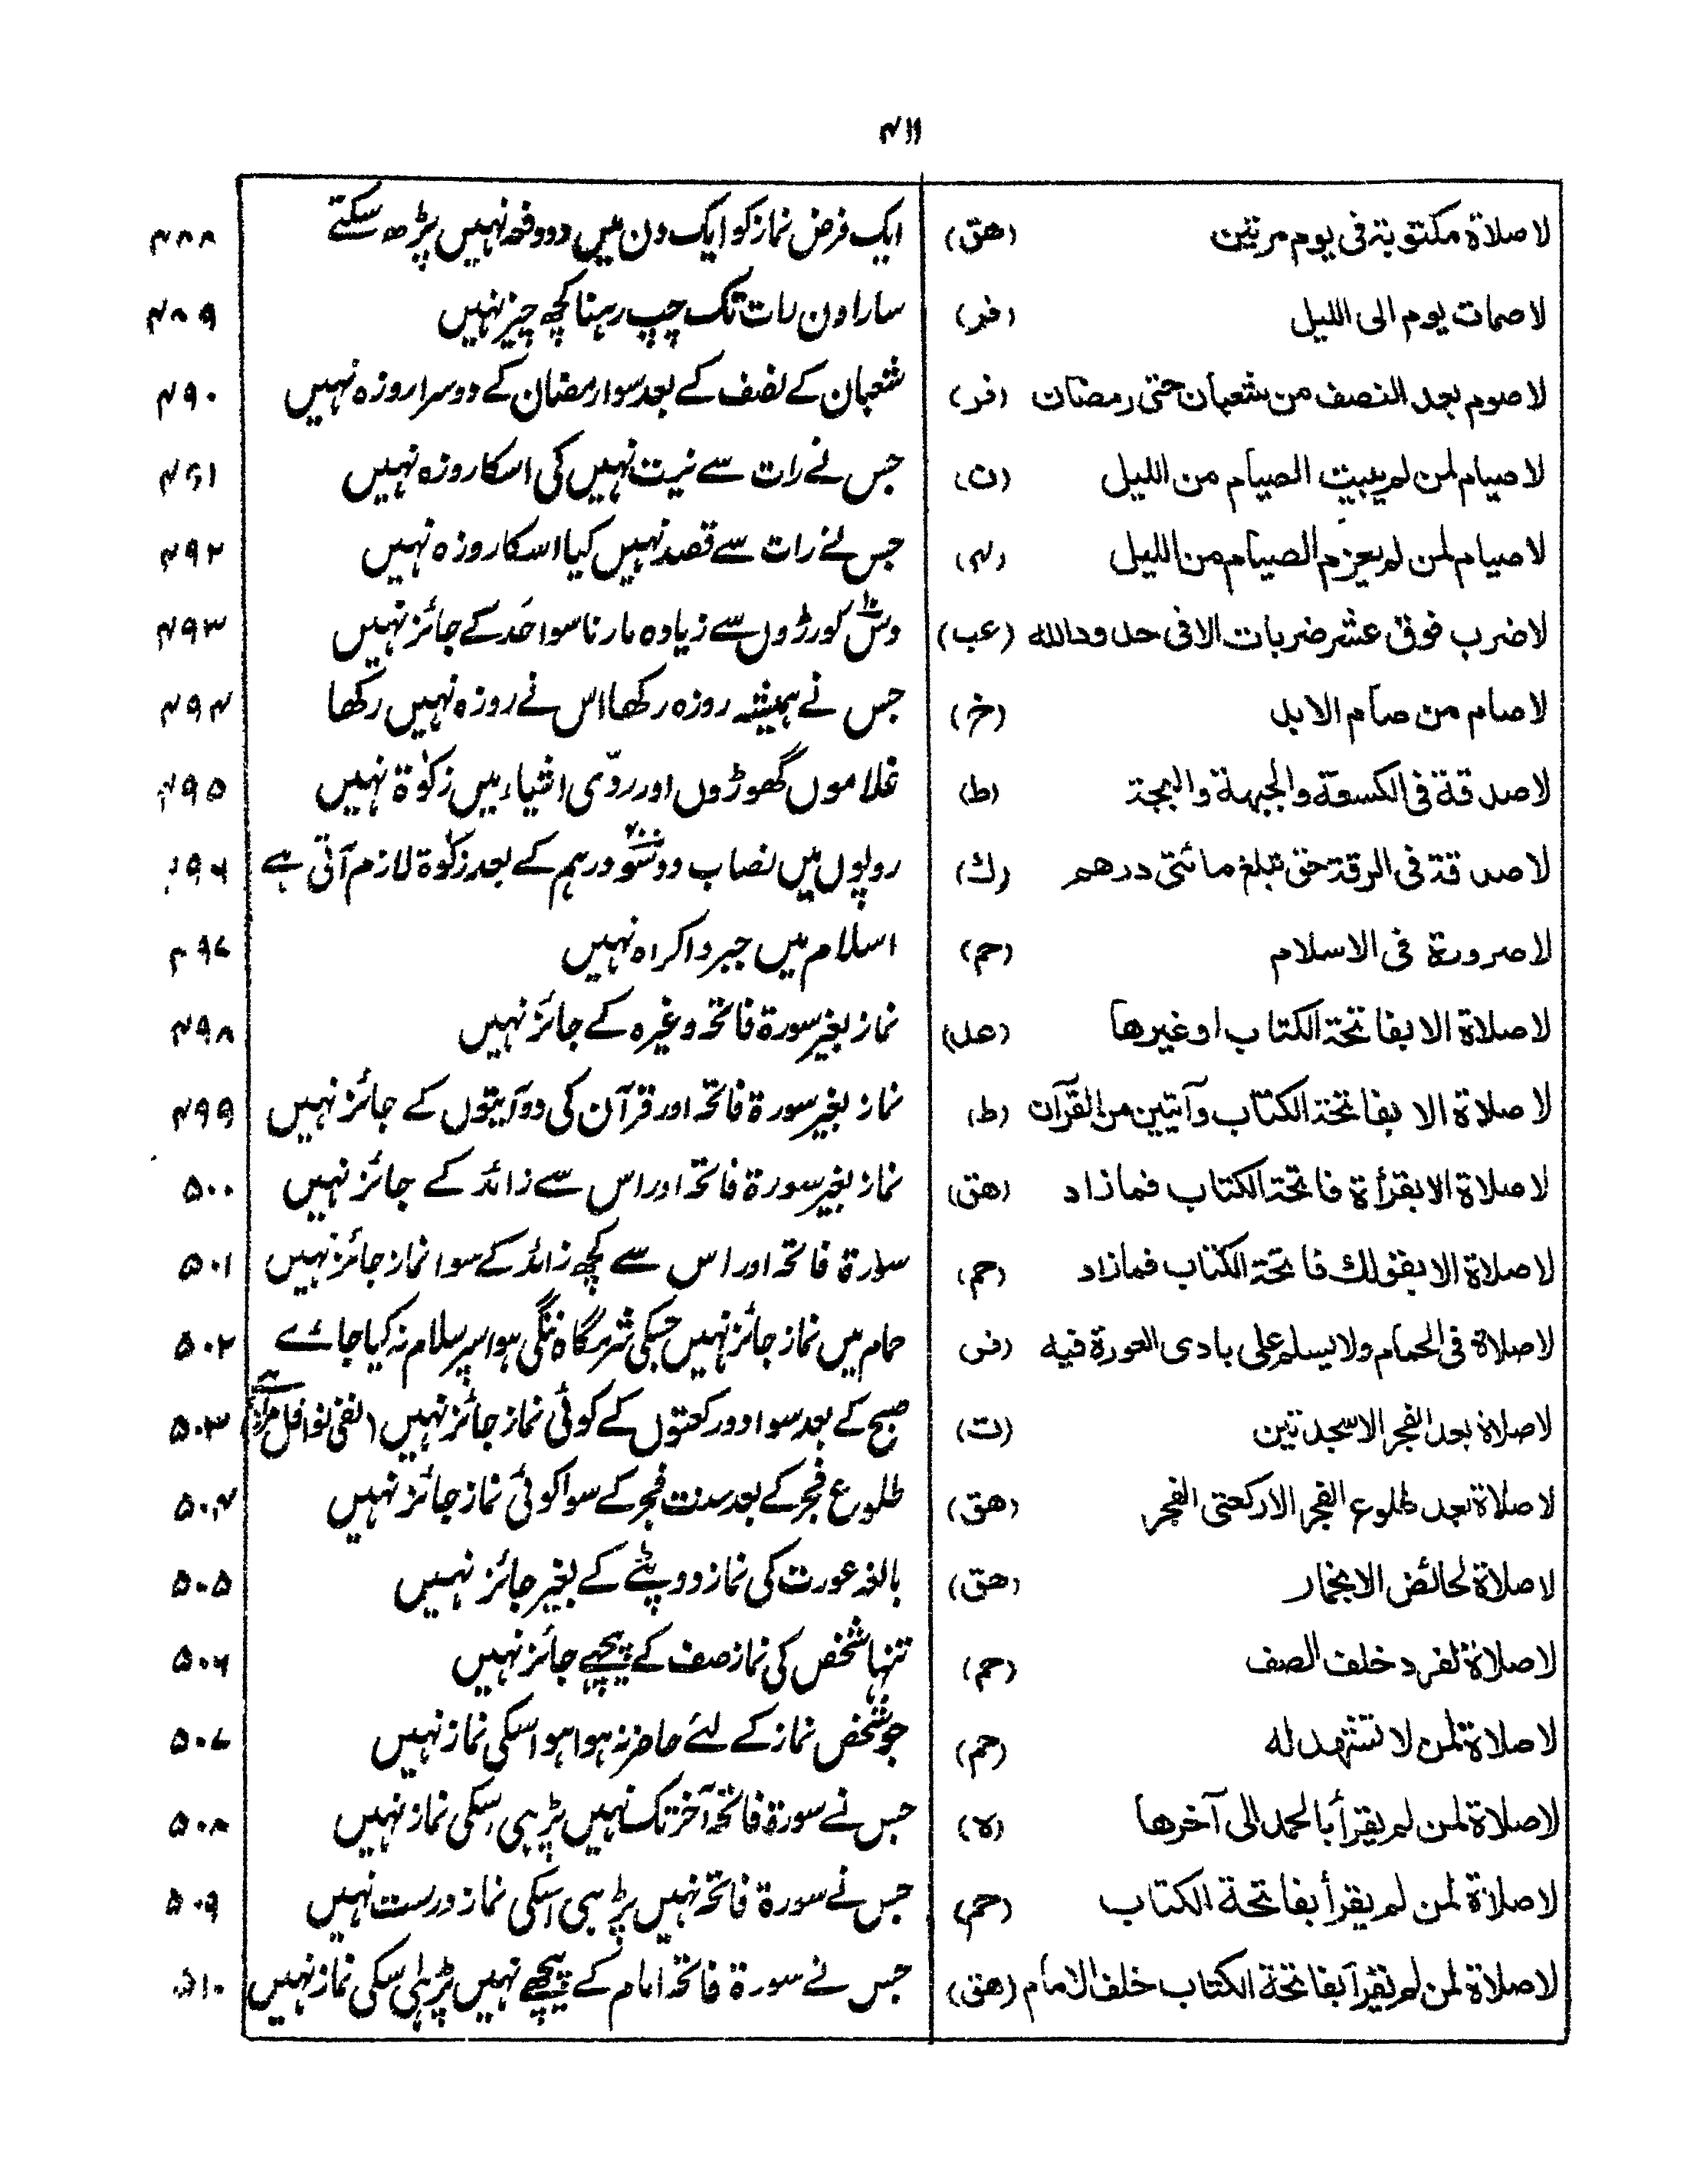 ۴۱۱
لا صلاة مكتوبة فى يوم مرتين (هق) ایک فرض نماز کو ایک دن میں دو دفعہ نہیں پڑھ سکتے ۴۸۸
لا صمات يوم الى الليل (فر) سارا دن رات تک چپ رہنا کچھ چیز نہیں ۴۸۹
لا صوم بعد النصف من شعبان حتى رمضان (فر) شعبان کے نصف کے بعد سوا رمضان کے دوسرا روزہ نہیں ۴۹۰
لا صيام لمن لم يبيت الصيام من الليل (ن) جس نے رات سے نیت نہیں کی اسکا روزہ نہیں ۴۹۱
لا صيام لمن لم يعزم الصيام من الليل جس نے رات سے قصد نہیں کیا اسکا روزہ نہیں ۴۹۲
لا ضرب فوق عشر ضربات الا فى حدود الله (عب) دس۱۰ کورڑوں سے زیادہ مارنا سوا حد کے جائز نہیں ۴۹۳
لا صام من صام الابد (خ) جس نے ہمیشہ روزہ رکھا اس نے روزہ نہیں رکھا ۴۹۴
لا صدقة فى الكسعة والجبهة والنخة (ط) غلاموں گھوڑوں اور ردّی اشیاء میں زکوٰۃ نہیں ۴۹۵
لا صدقة فى الرقة حتى تبلغ مائتى درهم (ك) روپوں میں نصاب دو سو۲۰۰ درہم کے بعد زکوٰۃ لازم آتی ہے ۴۹۶
لا صرورة فى الاسلام (حم) اسلام میں جبر و اکراہ نہیں ۴۹۷
لا صلاة الا بفاتحة الكتاب او غيرها (عد) نماز بغیر سورۃ فاتحہ وغیرہ کے جائز نہیں ۴۹۸
لا صلاة الا بفاتحة الكتاب وآيتين من القرآن (ط) نماز بغیر سورۃ فاتحہ اور قرآن کی دو آیتوں کے جائز نہیں ۴۹۹
لا صلاة الا بقرأة فاتحة الكتاب فما زاد (هق) نماز بغیر سورۃ فاتحہ اور اس سے زائد کے جائز نہیں ۵۰۰
لا صلاة الا بقولك فاتحة الكتاب فما زاد (حم) سورۃ فاتحہ اور اس سے کچھ زائد کے سوا نماز جائز نہیں ۵۰۱
لا صلاة فى الحمام ولا يسلم على بادى العورة فيه (فر) حمام میں نماز جائز نہیں جسکی شرمگاہ ننگی ہو اسپر سلام نہ کیا جائے ۵۰۲
لا صلاة بعد الفجر الا سجدتين (ت) صبح کے بعد سوا دو رکعتوں کے کوئی نماز جائز نہیں (نفی نوافل مراد ہے) ۵۰۳
لا صلاة بعد طلوع الفجر الا ركعتى الفجر (هق) طلوع فجر کے بعد سنت فجر کے سوا کوئی نماز جائز نہیں ۵۰۴
لا صلاة لحائض الا بخمار (هق) بالغہ عورت کی نماز دوپٹے کے بغیر جائز نہیں ۵۰۵
لا صلاة لفرد خلف الصف (حم) تنہا شخص کی نماز صف کے پیچھے جائز نہیں ۵۰۶
لا صلاة لمن لا تشهد له (حم) جو شخص نماز کے لئے حاضر نہ ہوا ہو اسکی نماز نہیں ۵۰۷
لا صلاة لمن لم يقرأ بالحمد الى آخرها (ه) جس نے سورۃ فاتحہ آخر تک نہیں پڑہی اسکی نماز نہیں ۵۰۸
لا صلاة لمن لم يقرأ بفاتحة الكتاب (حم) جس نے سورۃ فاتحہ نہیں پڑہی اسکی نماز درست نہیں ۵۰۹
لا صلاة لمن لم يقرأ بفاتحة الكتاب خلف الامام (هق) جس نے سورۃ فاتحہ امام کے پیچھے نہیں پڑہی اسکی نماز نہیں ۵۱۰